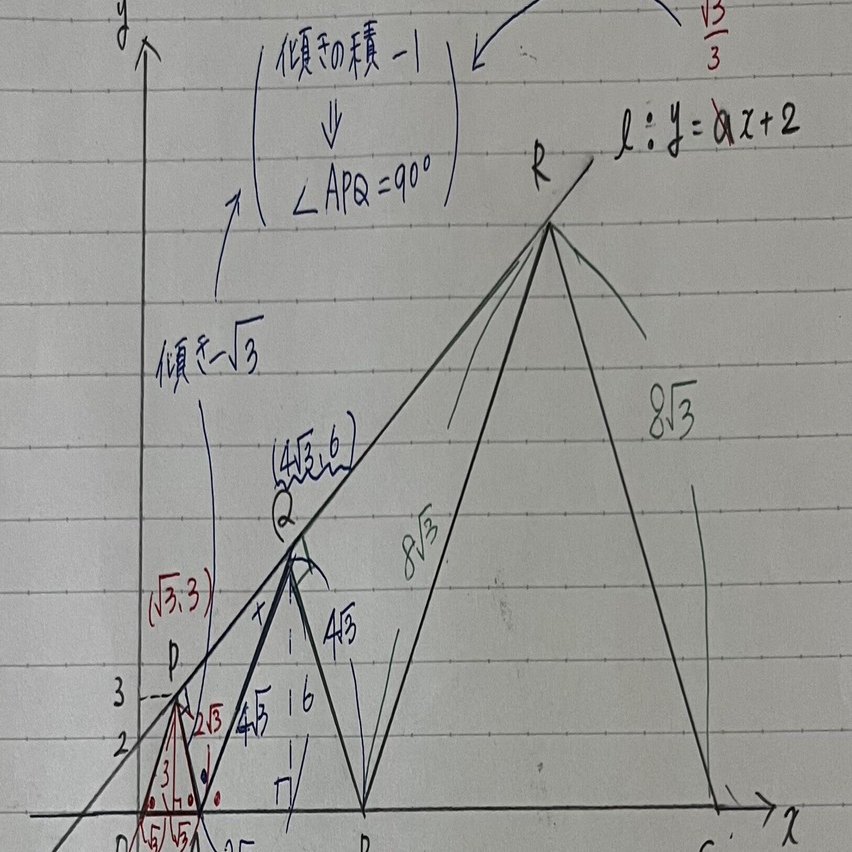 y
傾きの積 -1
⇓
∠APQ=90°
√3/3
l:y=ax+2
R
傾き-√3
8√3
(4√3,6)
Q
8√3
(√3,3)
4√3
P
3
2√3
4√3
6
2
3
x
√3
√3